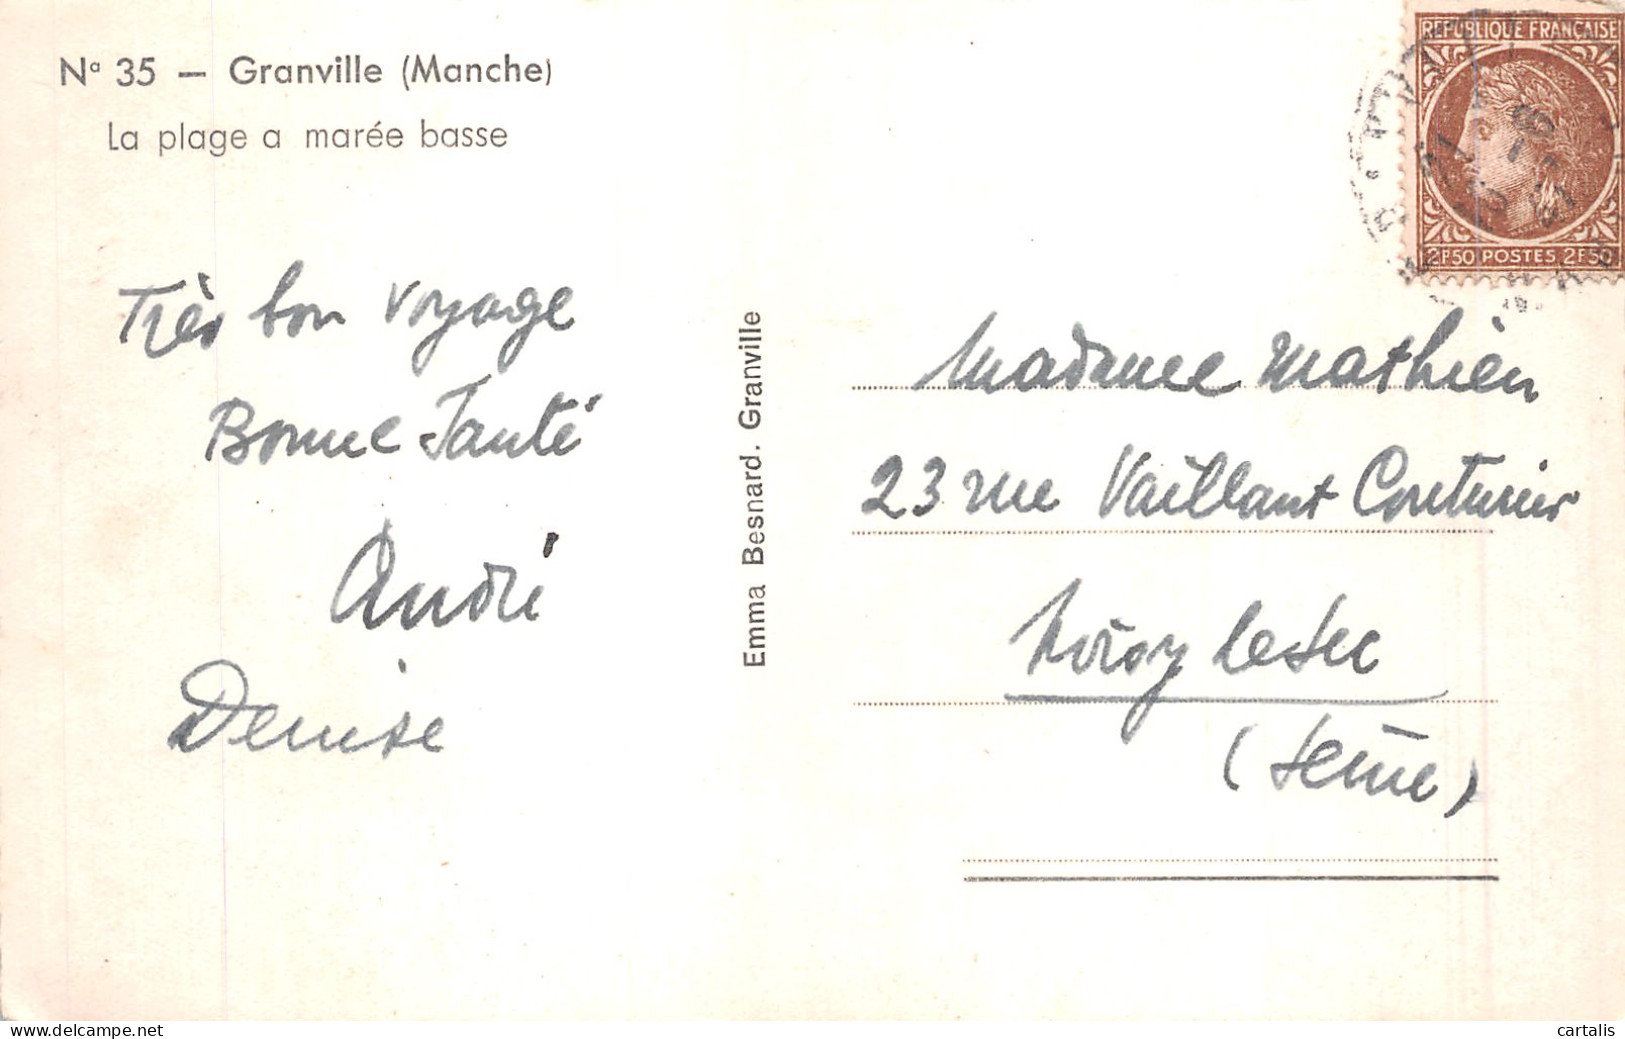 Nº 35 — Granville (Manche)
La plage a marée basse
Très bon voyage
Bonne Santé
André
Denise
Emma Besnard. Granville
REPUBLIQUE FRANÇAISE
2F50 POSTES 2F50
Madame Mathieu
23 rue Vaillant Couturier
Noisy le Sec
(Seine)
cartalis
delcampe.net